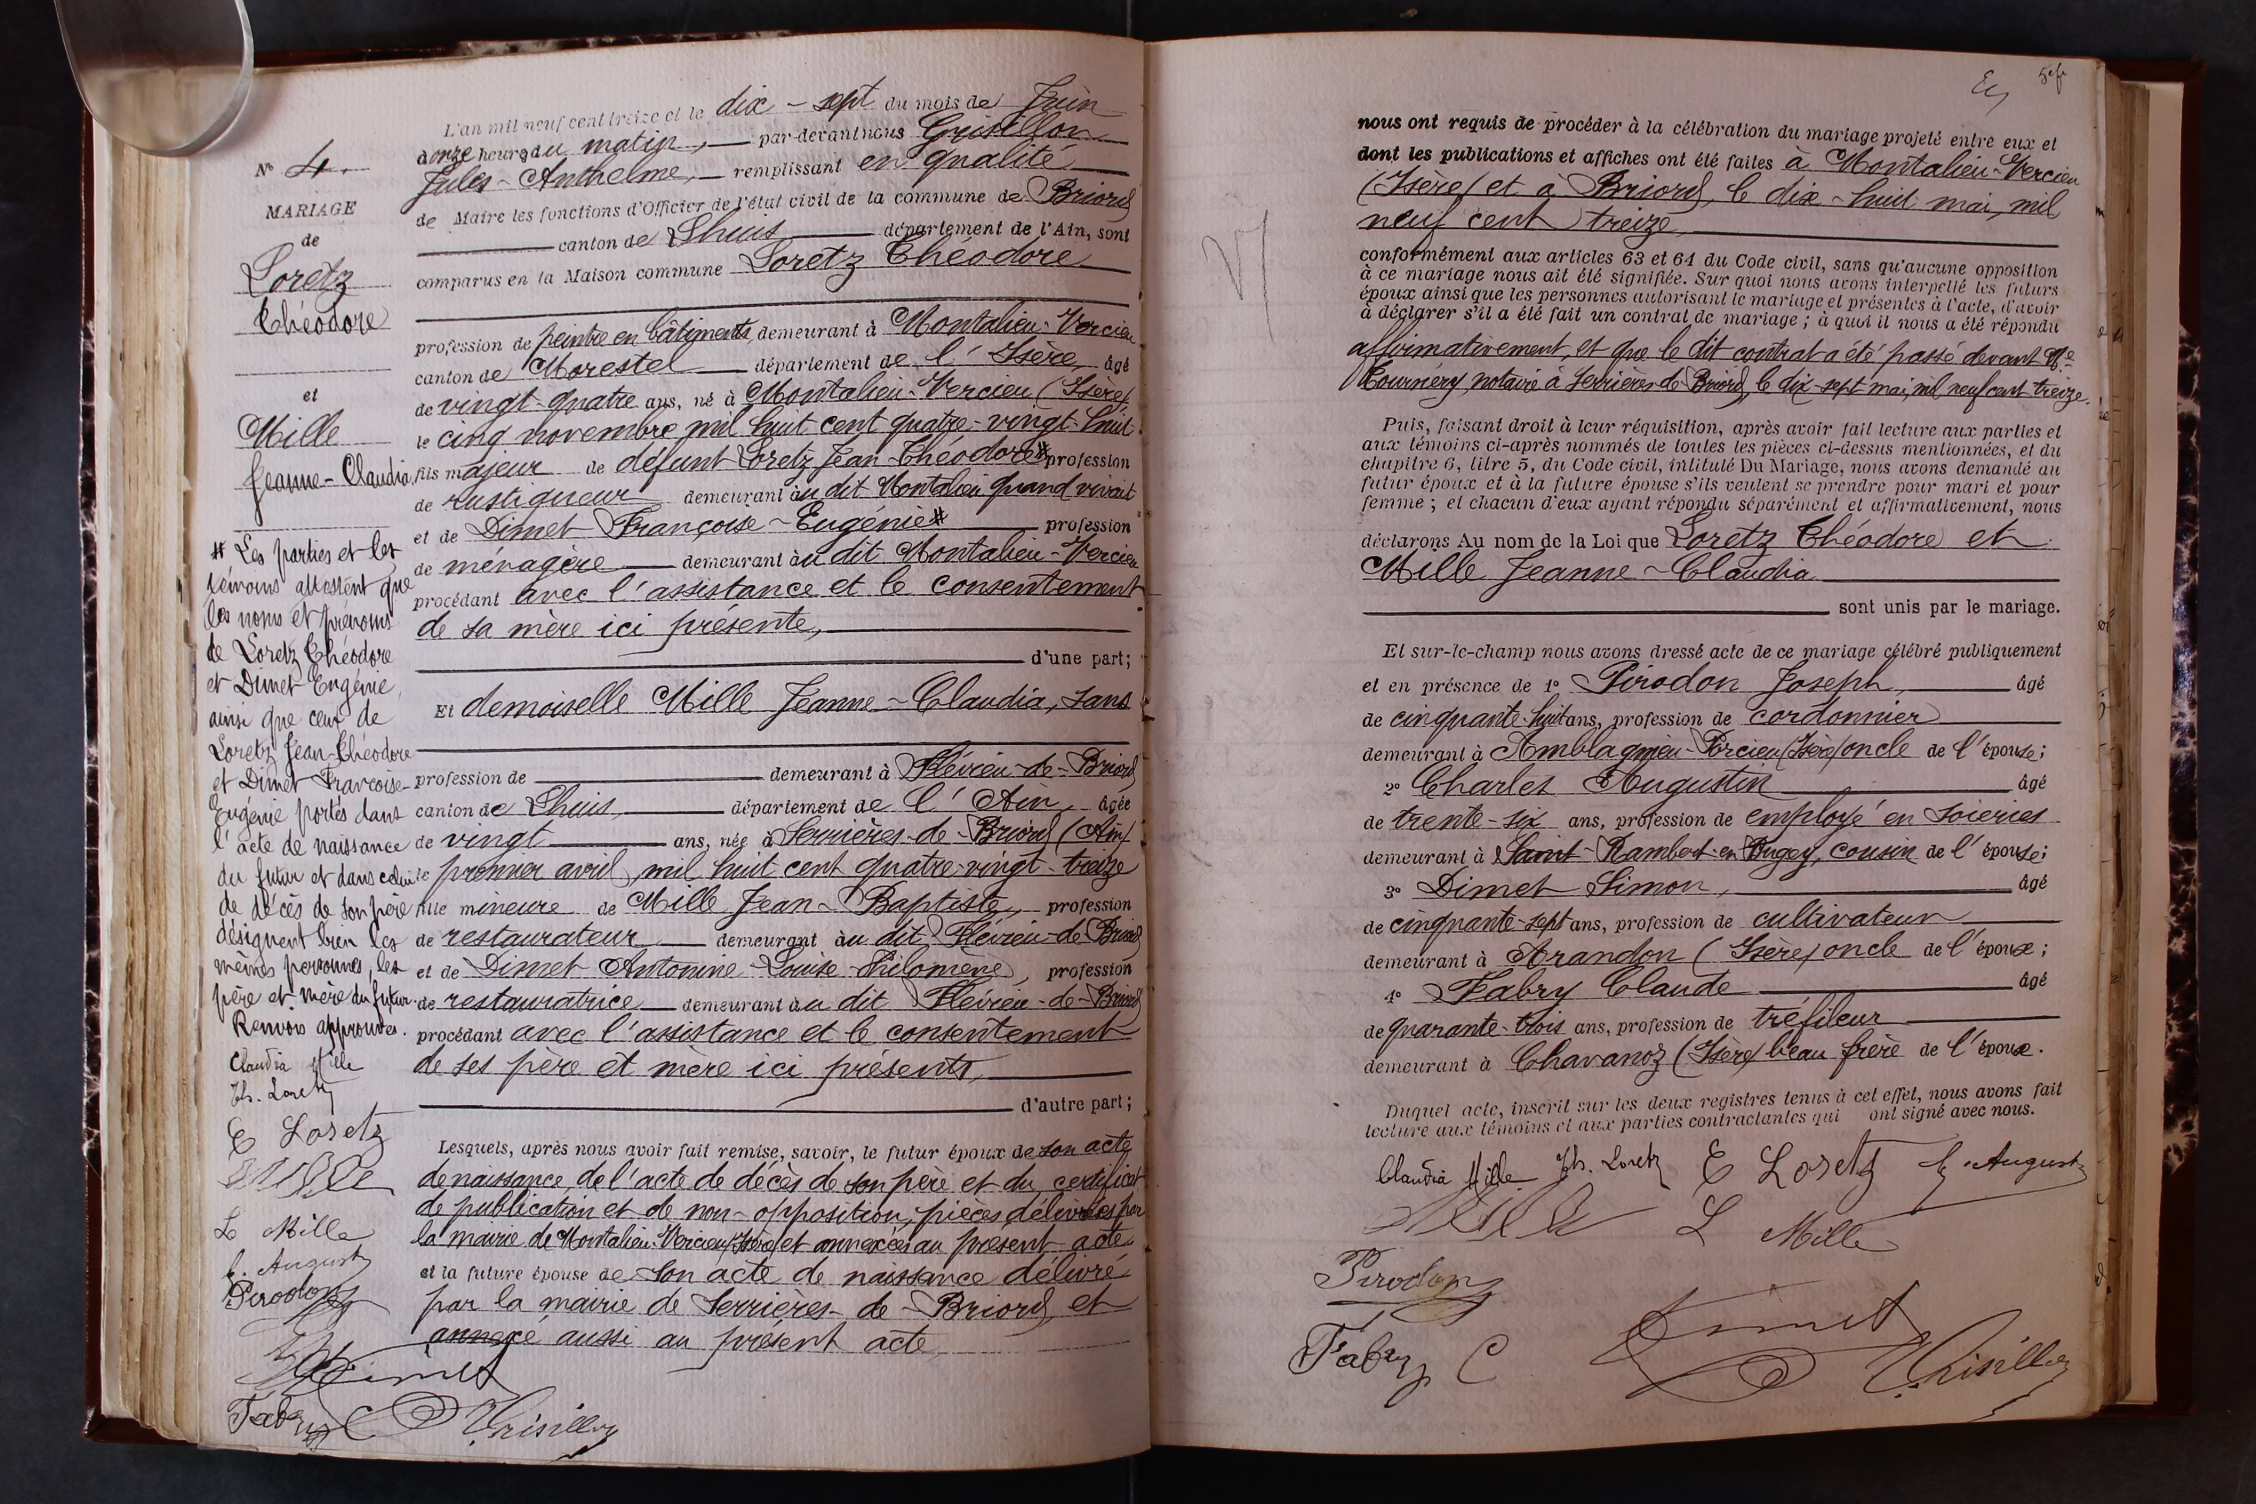 N° 4.
MARIAGE
de
Loretz
Théodore
et
Mille
Jeanne-Claudia
# Les parties et les
témoins attestent que
les noms et prénoms
de Loretz Théodore
et Dimet Eugénie,
ainsi que ceux de
Loretz Jean-Théodore
et Dimet Françoise-
Eugénie portés dans
l'acte de naissance
du futur et dans celui
de décès de son père
désignent bien les
mêmes personnes, les
père et mère du futur.
Renvois approuvés.
Claudia Mille
Th. Loretz
E Loretz
Mille
L Mille
C. August
Pirodon
Dimet
Fabry C
Grisillon
L'an mil neuf cent treize et le dix-sept du mois de Juin
à onze heures du matin, par-devant nous Grisillon
Jules-Anthelme, remplissant en qualité
de Maire les fonctions d'Officier de l'état civil de la commune de Briord
canton de Lhuis département de l'Ain, sont
comparus en la Maison commune Loretz Théodore
profession de peintre en bâtiments, demeurant à Montalieu-Vercieu
canton de Morestel département de l'Isère, âgé
de vingt-quatre ans, né à Montalieu-Vercieu (Isère)
le cinq novembre mil huit cent quatre-vingt-huit
fils majeur de défunt Loretz Jean-Théodore # profession
de rustiqueur demeurant au dit Montalieu quand vivait
et de Dimet Françoise-Eugénie # profession
de ménagère demeurant au dit Montalieu-Vercieu
procédant avec l'assistance et le consentement
de sa mère ici présente,
d'une part;
Et demoiselle Mille Jeanne-Claudia, sans
profession de demeurant à Flévieu-de-Briord
canton de Lhuis, département de l'Ain, âgée
de vingt ans, née à Serrières-de-Briord (Ain)
le premier avril mil huit cent quatre-vingt-treize
fille mineure de Mille Jean-Baptiste, profession
de restaurateur demeurant au dit Flévieu-de-Briord
et de Dimet Antonine-Louise-Philomène, profession
de restauratrice demeurant au dit Flévieu-de-Briord
procédant avec l'assistance et le consentement
de ses père et mère ici présents,
d'autre part;
Lesquels, après nous avoir fait remise, savoir, le futur époux de son acte
de naissance, de l'acte de décès de son père et du certificat
de publication et de non-opposition, pièces délivrées par
la mairie de Montalieu-Vercieu (Isère) et annexées au présent acte
et la future épouse de son acte de naissance délivré
par la mairie de Serrières-de-Briord, et
annexé aussi au présent acte,
nous ont requis de procéder à la célébration du mariage projeté entre eux et
dont les publications et affiches ont été faites à Montalieu-Vercieu
(Isère) et à Briord, le dix-huit mai, mil
neuf cent treize
conformément aux articles 63 et 64 du Code civil, sans qu'aucune opposition
à ce mariage nous ait été signifiée. Sur quoi nous avons interpellé les futurs
époux ainsi que les personnes autorisant le mariage et présentes à l'acte, d'avoir
à déclarer s'il a été fait un contrat de mariage; à quoi il nous a été répondu
affirmativement, et que le dit contrat a été passé devant Me
Tournéry, notaire à Serrières-de-Briord, le dix-sept mai, mil neuf cent treize.
Puis, faisant droit à leur réquisition, après avoir fait lecture aux parties et
aux témoins ci-après nommés de toutes les pièces ci-dessus mentionnées, et du
chapitre 6, titre 5, du Code civil, intitulé Du Mariage, nous avons demandé au
futur époux et à la future épouse s'ils veulent se prendre pour mari et pour
femme; et chacun d'eux ayant répondu séparément et affirmativement, nous
déclarons Au nom de la Loi que Loretz Théodore et
Mille Jeanne-Claudia
sont unis par le mariage.
Et sur-le-champ nous avons dressé acte de ce mariage célébré publiquement
et en présence de 1° Pirodon Joseph, âgé
de cinquante-huit ans, profession de cordonnier
demeurant à Amblagnieu-Porcieu (Isère) oncle de l'épouse;
2° Charles Augustin âgé
de trente-six ans, profession de employé en soieries
demeurant à Saint-Rambert-en-Bugey, cousin de l'épouse;
3° Dimet Simon, âgé
de cinquante-sept ans, profession de cultivateur
demeurant à Arandon (Isère) oncle de l'épouse;
4° Fabry Claude âgé
de quarante-trois ans, profession de tréfileur
demeurant à Chavanoz (Isère) beau frère de l'épouse.
Duquel acte, inscrit sur les deux registres tenus à cet effet, nous avons fait
lecture aux témoins et aux parties contractantes qui ont signé avec nous.
Claudia Mille Th. Loretz E Loretz C. August
Mille L Mille
Pirodon
Dimet
Fabry C Grisillon